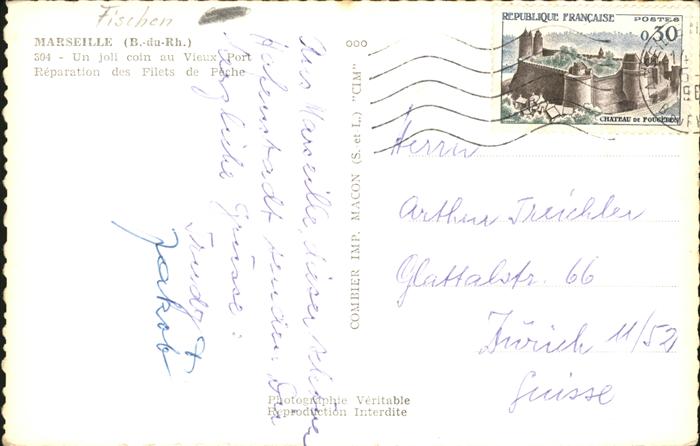 Fischen
MARSEILLE (B.-du-Rh.)
304 - Un joli coin au Vieux Port
Réparation des Filets de Pêche
Aus Marseille, dieser schönen
Hafenstadt senden Dir
herzliche Grüsse:
Trudy +
Jakob
COMBIER IMP. MACON (S.-et-L.) "CIM"
REPUBLIQUE FRANÇAISE POSTES
0,30
CHATEAU DE FOUGERES
Herrn
Arthur Treichler
Glattalstr. 66
Zürich 11/52
Suisse
Photographie Véritable
Reproduction Interdite